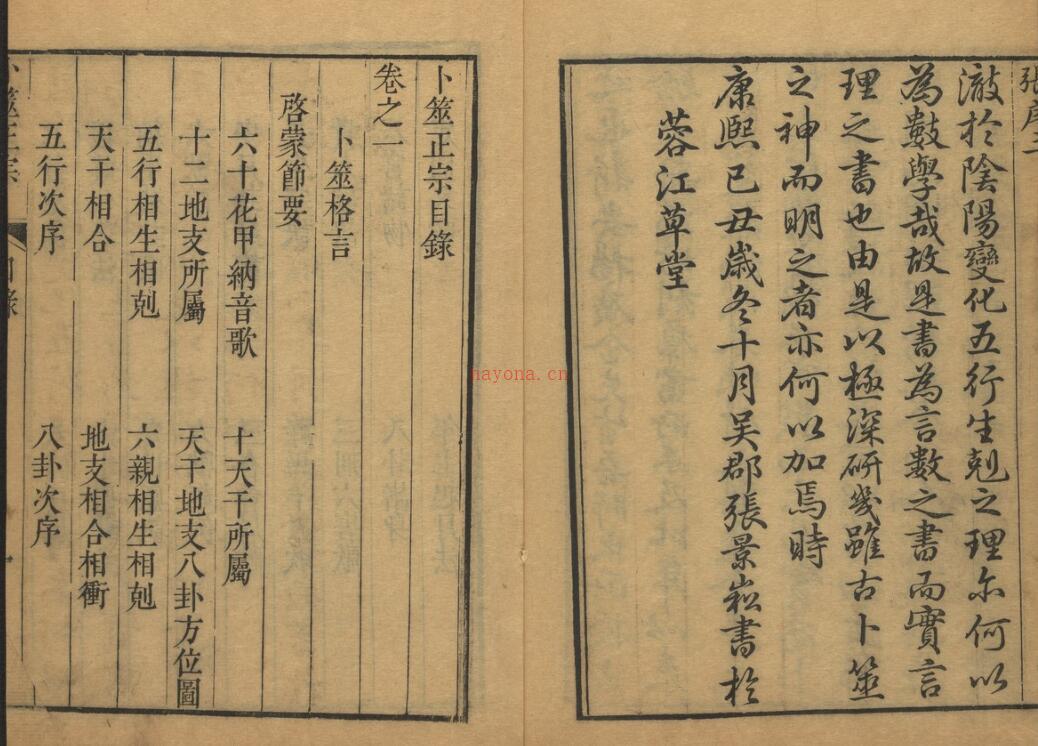 張序二
澂於陰陽變化五行生剋之理尓何以
為數學哉故是書為言數之書而實言
理之書也由是以極深研幾雖古卜筮
之神而明之者亦何以加焉時
康熙己丑歲冬十月吳郡張景崧書於
蓉江草堂
卜筮正宗目錄
卷之一
卜筮格言
啓蒙節要
六十花甲納音歌 十天干所屬
十二地支所屬 天干地支八卦方位圖
五行相生相剋 六親相生相剋
天干相合 地支相合相衝
五行次序 八卦次序
卜筮正宗 目錄 一
hayona.cn